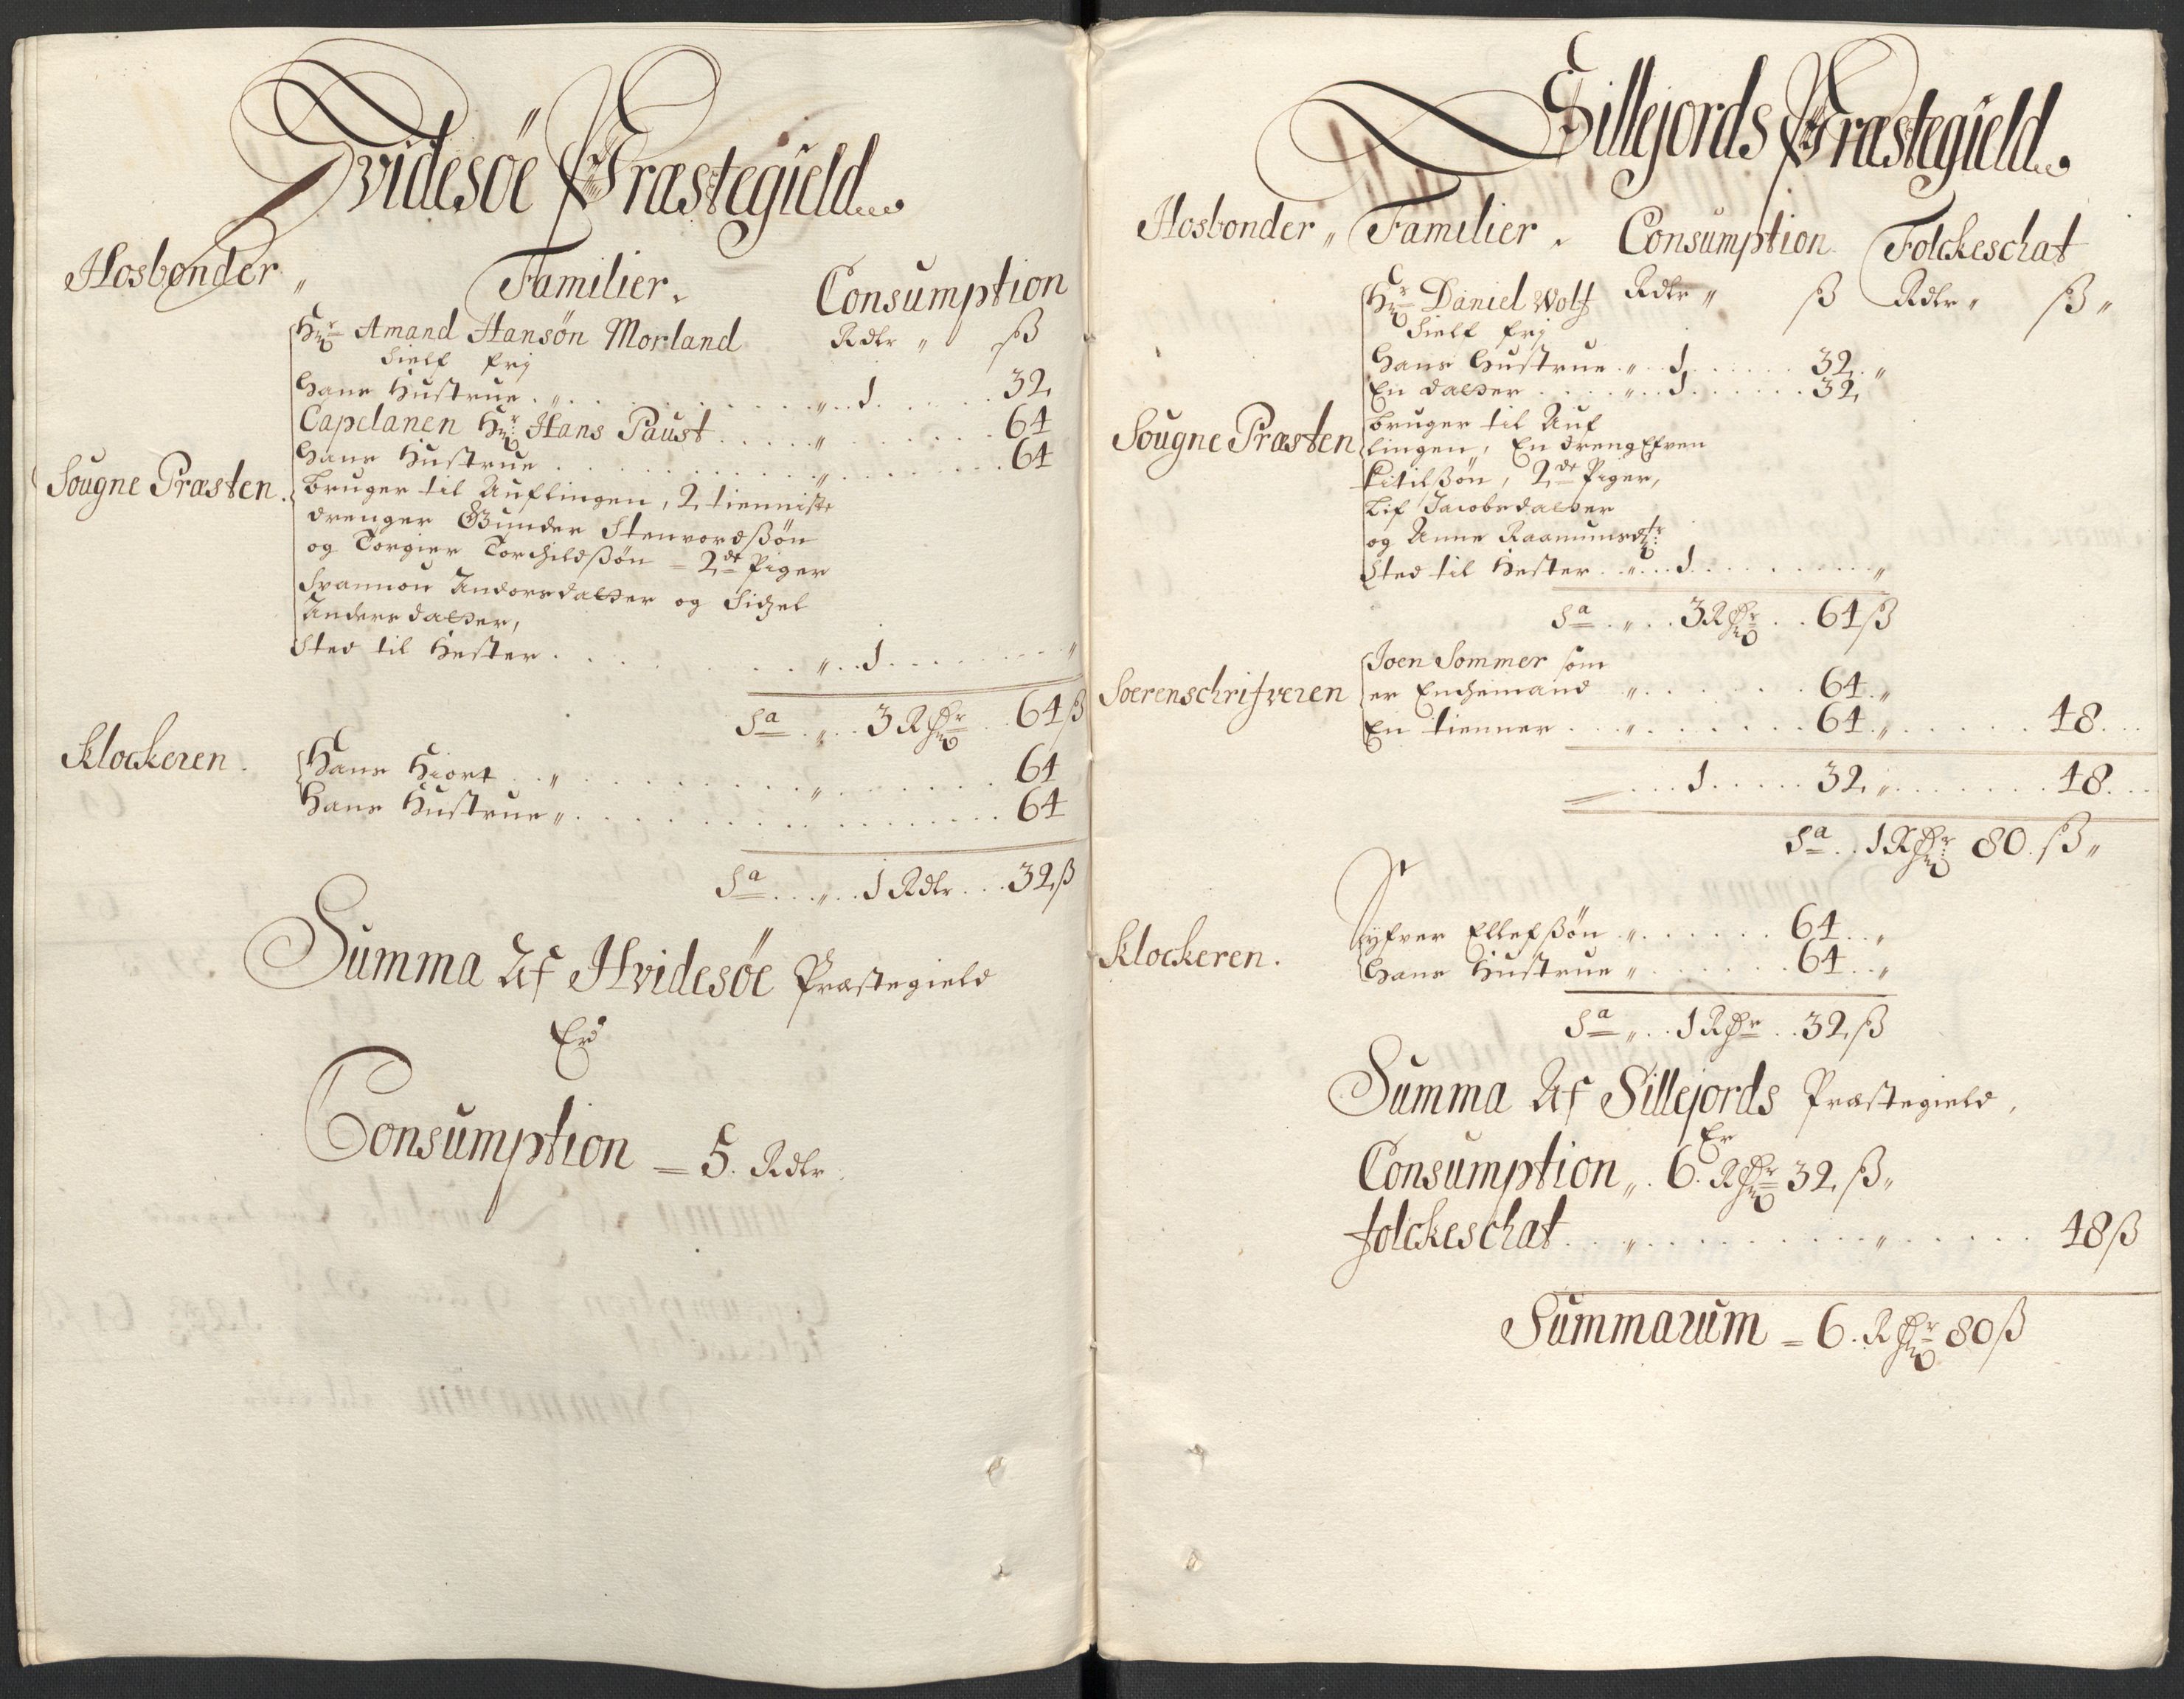 Hvidesöe Præstegield
Hosbonder „ Familier „ Consumption
Hr Amand Hansön Morland Rdlr „ ß
Sielf frj
Hans Hustrue „ 1 32
Capelanen Hr: Hans Paust „ 64
Hans Hustrue „ 64
Sougne Præsten
Bruger til Auflingen, 2 tienniste
drenger Gunder Stenvordßön
og Torgier Torchildßön = 2de Piger
Svannou Andorsdatter og Sidzel
Andersdatter,
Sted til Hester „ 1 „
Sa „ 3 Rdr 64 ß
Klockeren
Hans Hiort „ „ 64
Hans Hustrue „ 64
Sa „ 1 Rdlr 32 ß
Summa Af Hvidesöe Præstegield
Er
Consumption = 5. Rdlr
Sillejords Præstegield
Hosbonder „ Familier „ Consumption Folckeschat
Hr Daniel Wolf Rdlr „ ß Rdlr „ ß „
Sielf frj
Hans Hustrue „ 1 32 „
En datter „ 1 32
Sougne Præsten
Bruger til Auf
lingen, En dreng Efven
Kitilßön, 2de Piger,
Lif Jacobsdatter
og Anne Raamundsdtr:
Sted til Hester „ 1 „
Sa „ 3 Rdr 64 ß
Soerenschrifveren
Joen Sommer som
er Enchemand „ 64 „
En tienner „ 64 „ 48
1 32 „ 48
Sa 1 Rdr: 80 ß „
Klockeren.
Syfver Ellefßön „ 64 „
Hans Hustrue „ 64 „
Sa „ 1 Rdr 32 ß
Summa Af Sillejords Præstegield,
Er
Consumption „ 6. Rdr 32 ß „
folckeschat „ „ 48 ß
Summarum = 6. Rdr 80 ß